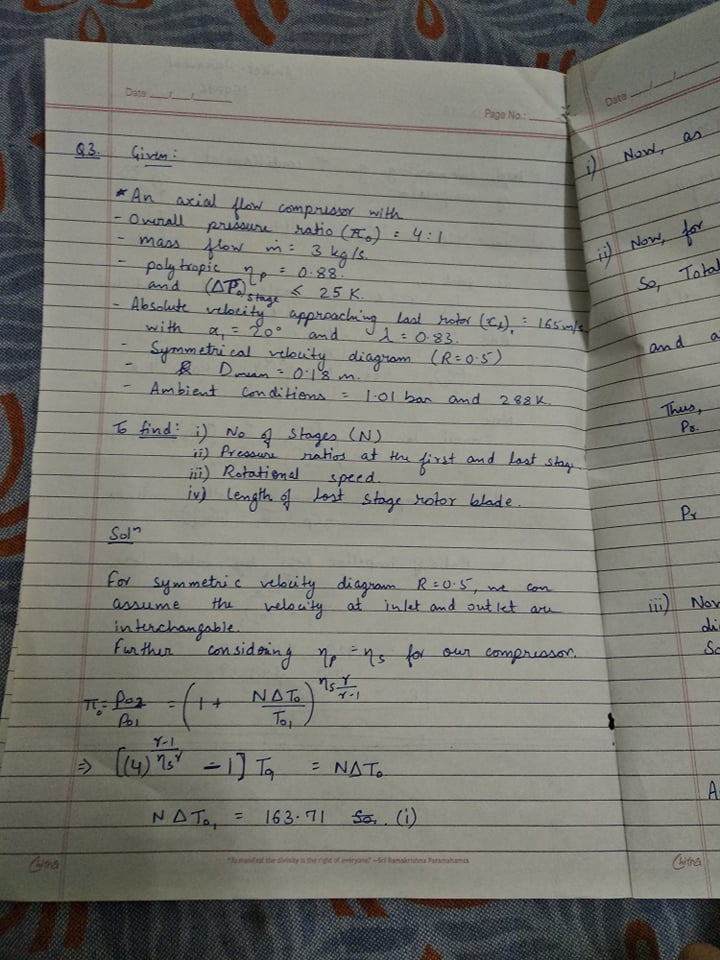 Date __/__/____
Page No.: ____
Q3. Given:
* An axial flow compressor with
- Overall pressure ratio (π₀) = 4:1
- mass flow ṁ = 3 kg/s.
- polytropic ηp = 0.88.
and (ΔT₀)stage ≤ 25 K.
- Absolute velocity approaching last rotor = 165 m/s
with α₁ = 20° and λ = 0.83.
- Symmetrical velocity diagram (R = 0.5)
- Dmean = 0.18 m.
- Ambient conditions = 1.01 bar and 288 K.
To find: i) No of stages (N)
ii) Pressure ratios at the first and last stage
iii) Rotational speed.
iv) Length of last stage rotor blade.
Solⁿ
For symmetric velocity diagram R = 0.5, we can
assume the velocity at inlet and outlet are
interchangable.
Further considering ηp = ηs for our compressor.
π₀ = P02/P01 = (1 + NΔT₀/T01)^(ηs r/(r-1))
⇒ [(4)^((r-1)/(ηs r)) - 1] T01 = NΔT₀
NΔT₀₁ = 163.71 (i)
Chitra
"To manifest the divinity is the right of everyone" ~Sri Ramakrishna Paramahamsa
Date __/__/____
i) Now, as
ii) Now, for
So, Total
and a
Thus,
P₀
Pr
iii) Nov
di
So
A
Chitra